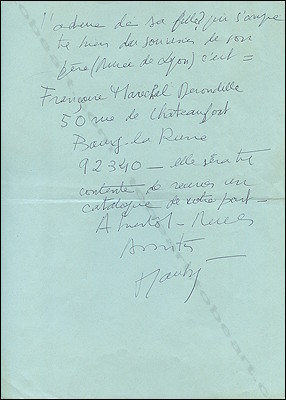 l'adresse de sa fille qui s'occupe
très bien du souvenir de son
père (Musée de Lyon) c'est =
Françoise Marechal Derondelle
50 rue de Chateaufort
Bourg-la Reine
92340 – elle sera très
contente de recevoir un
catalogue de votre part –
A bientôt – Merci